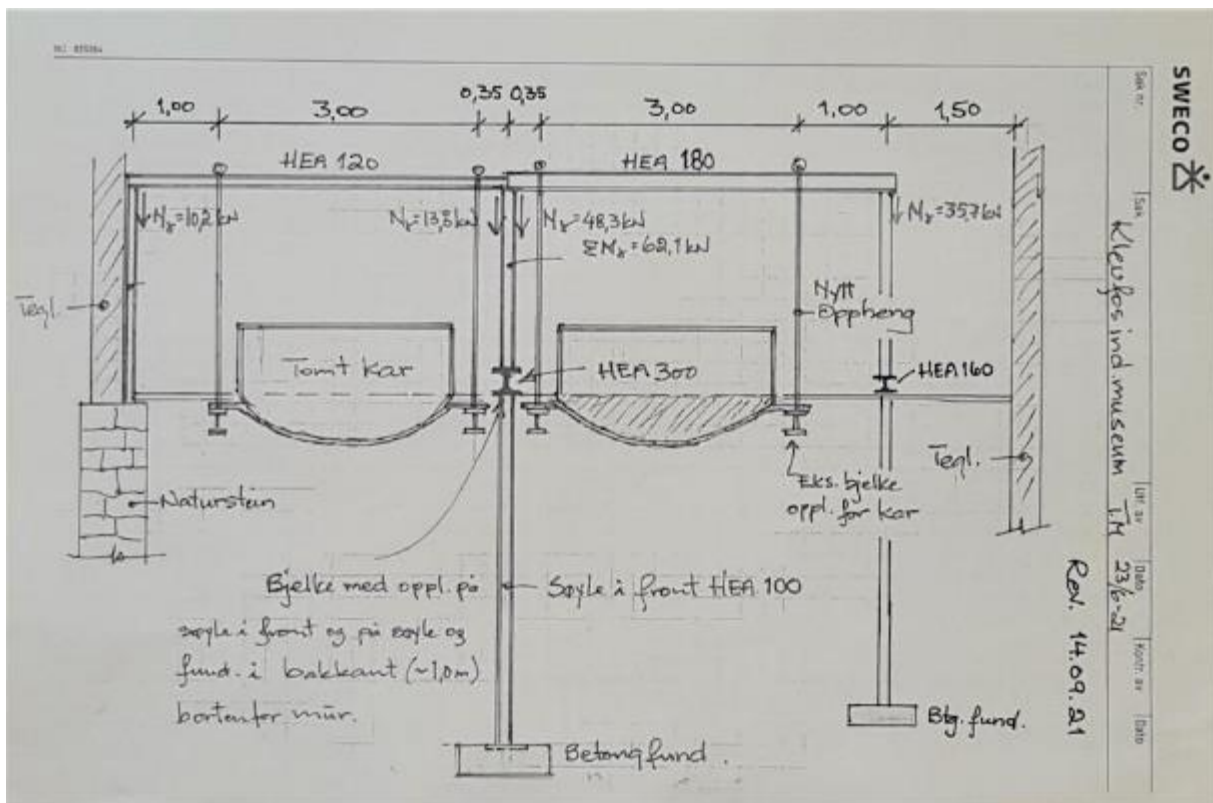 1,00
3,00
0,35 0,35
3,00
1,00
1,50
HEA 120
HEA 180
Nγ=10,2 kN
Nγ=13,8 kN
Nγ=48,3 kN
ΣNγ=62,1 kN
Nγ=35,7 kN
Tegl.
Nytt
Oppheng
Tomt kar
HEA 300
HEA 160
Tegl.
Naturstein
Eks. bjelke
oppl. for kar
Bjelke med oppl. på
søyle i front og på søyle og
fund. i bakkant (~1,0m)
bortenfor mur.
Søyle i front HEA 100
Btg. fund.
Betongfund.
SWECO
Sak nr.
Sak
Klevfos ind museum
Utf. av
T.M
Dato
23/6-21
Kontr. av
Dato
Rev. 14.09.21